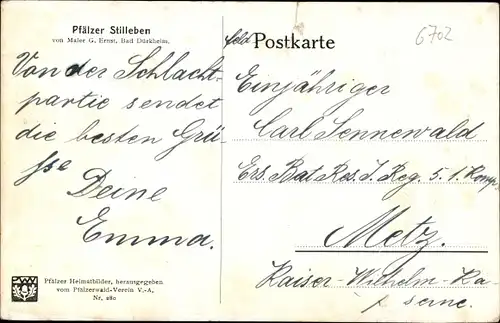 Pfälzer Stilleben
von Maler G. Ernst, Bad Dürkheim.
Von der Schlacht-
partie sendet
die besten Grü-
sse
Deine
Emma.
Pfälzer Heimatbilder, herausgegeben
vom Pfälzerwald-Verein V.-A,
Nr. 280
Feld Postkarte
6702
Einjähriger
Carl Sennewald
Ers. Bat. Res. I. Reg. 5. 1. Komp.
Metz.
Kaiser-Wilhelm-Ka-
serne.